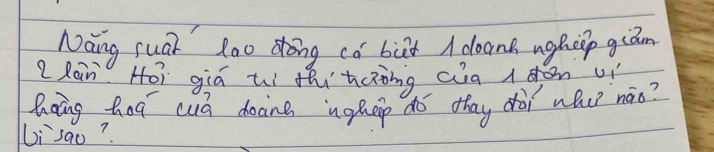 Năng suất lao động cá biệt 1 doanh nghiệp giảm
2 lần. Hỏi giá trị thị trường của 1 đơn vị
hàng hoá của doanh nghiệp đó thay đổi như nào?
Vì sao?